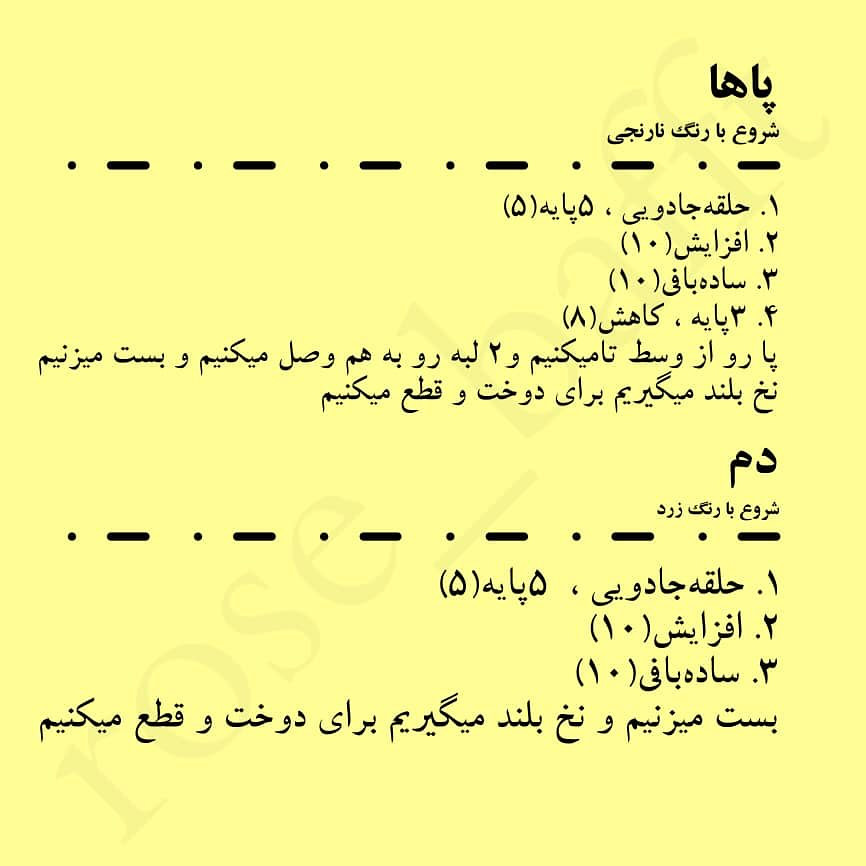 پاها
شروع با رنگ نارنجی
۱. حلقه‌جادویی ، ۵پایه(۵)
۲. افزایش(۱۰)
۳. ساده‌بافی(۱۰)
۴. ۳پایه ، کاهش(۸)
پا رو از وسط تامیکنیم و۲ لبه رو به هم وصل میکنیم و بست میزنیم
نخ بلند میگیریم برای دوخت و قطع میکنیم
دم
شروع با رنگ زرد
۱. حلقه‌جادویی ، ۵پایه(۵)
۲. افزایش(۱۰)
۳. ساده‌بافی(۱۰)
بست میزنیم و نخ بلند میگیریم برای دوخت و قطع میکنیم
rose_bafit